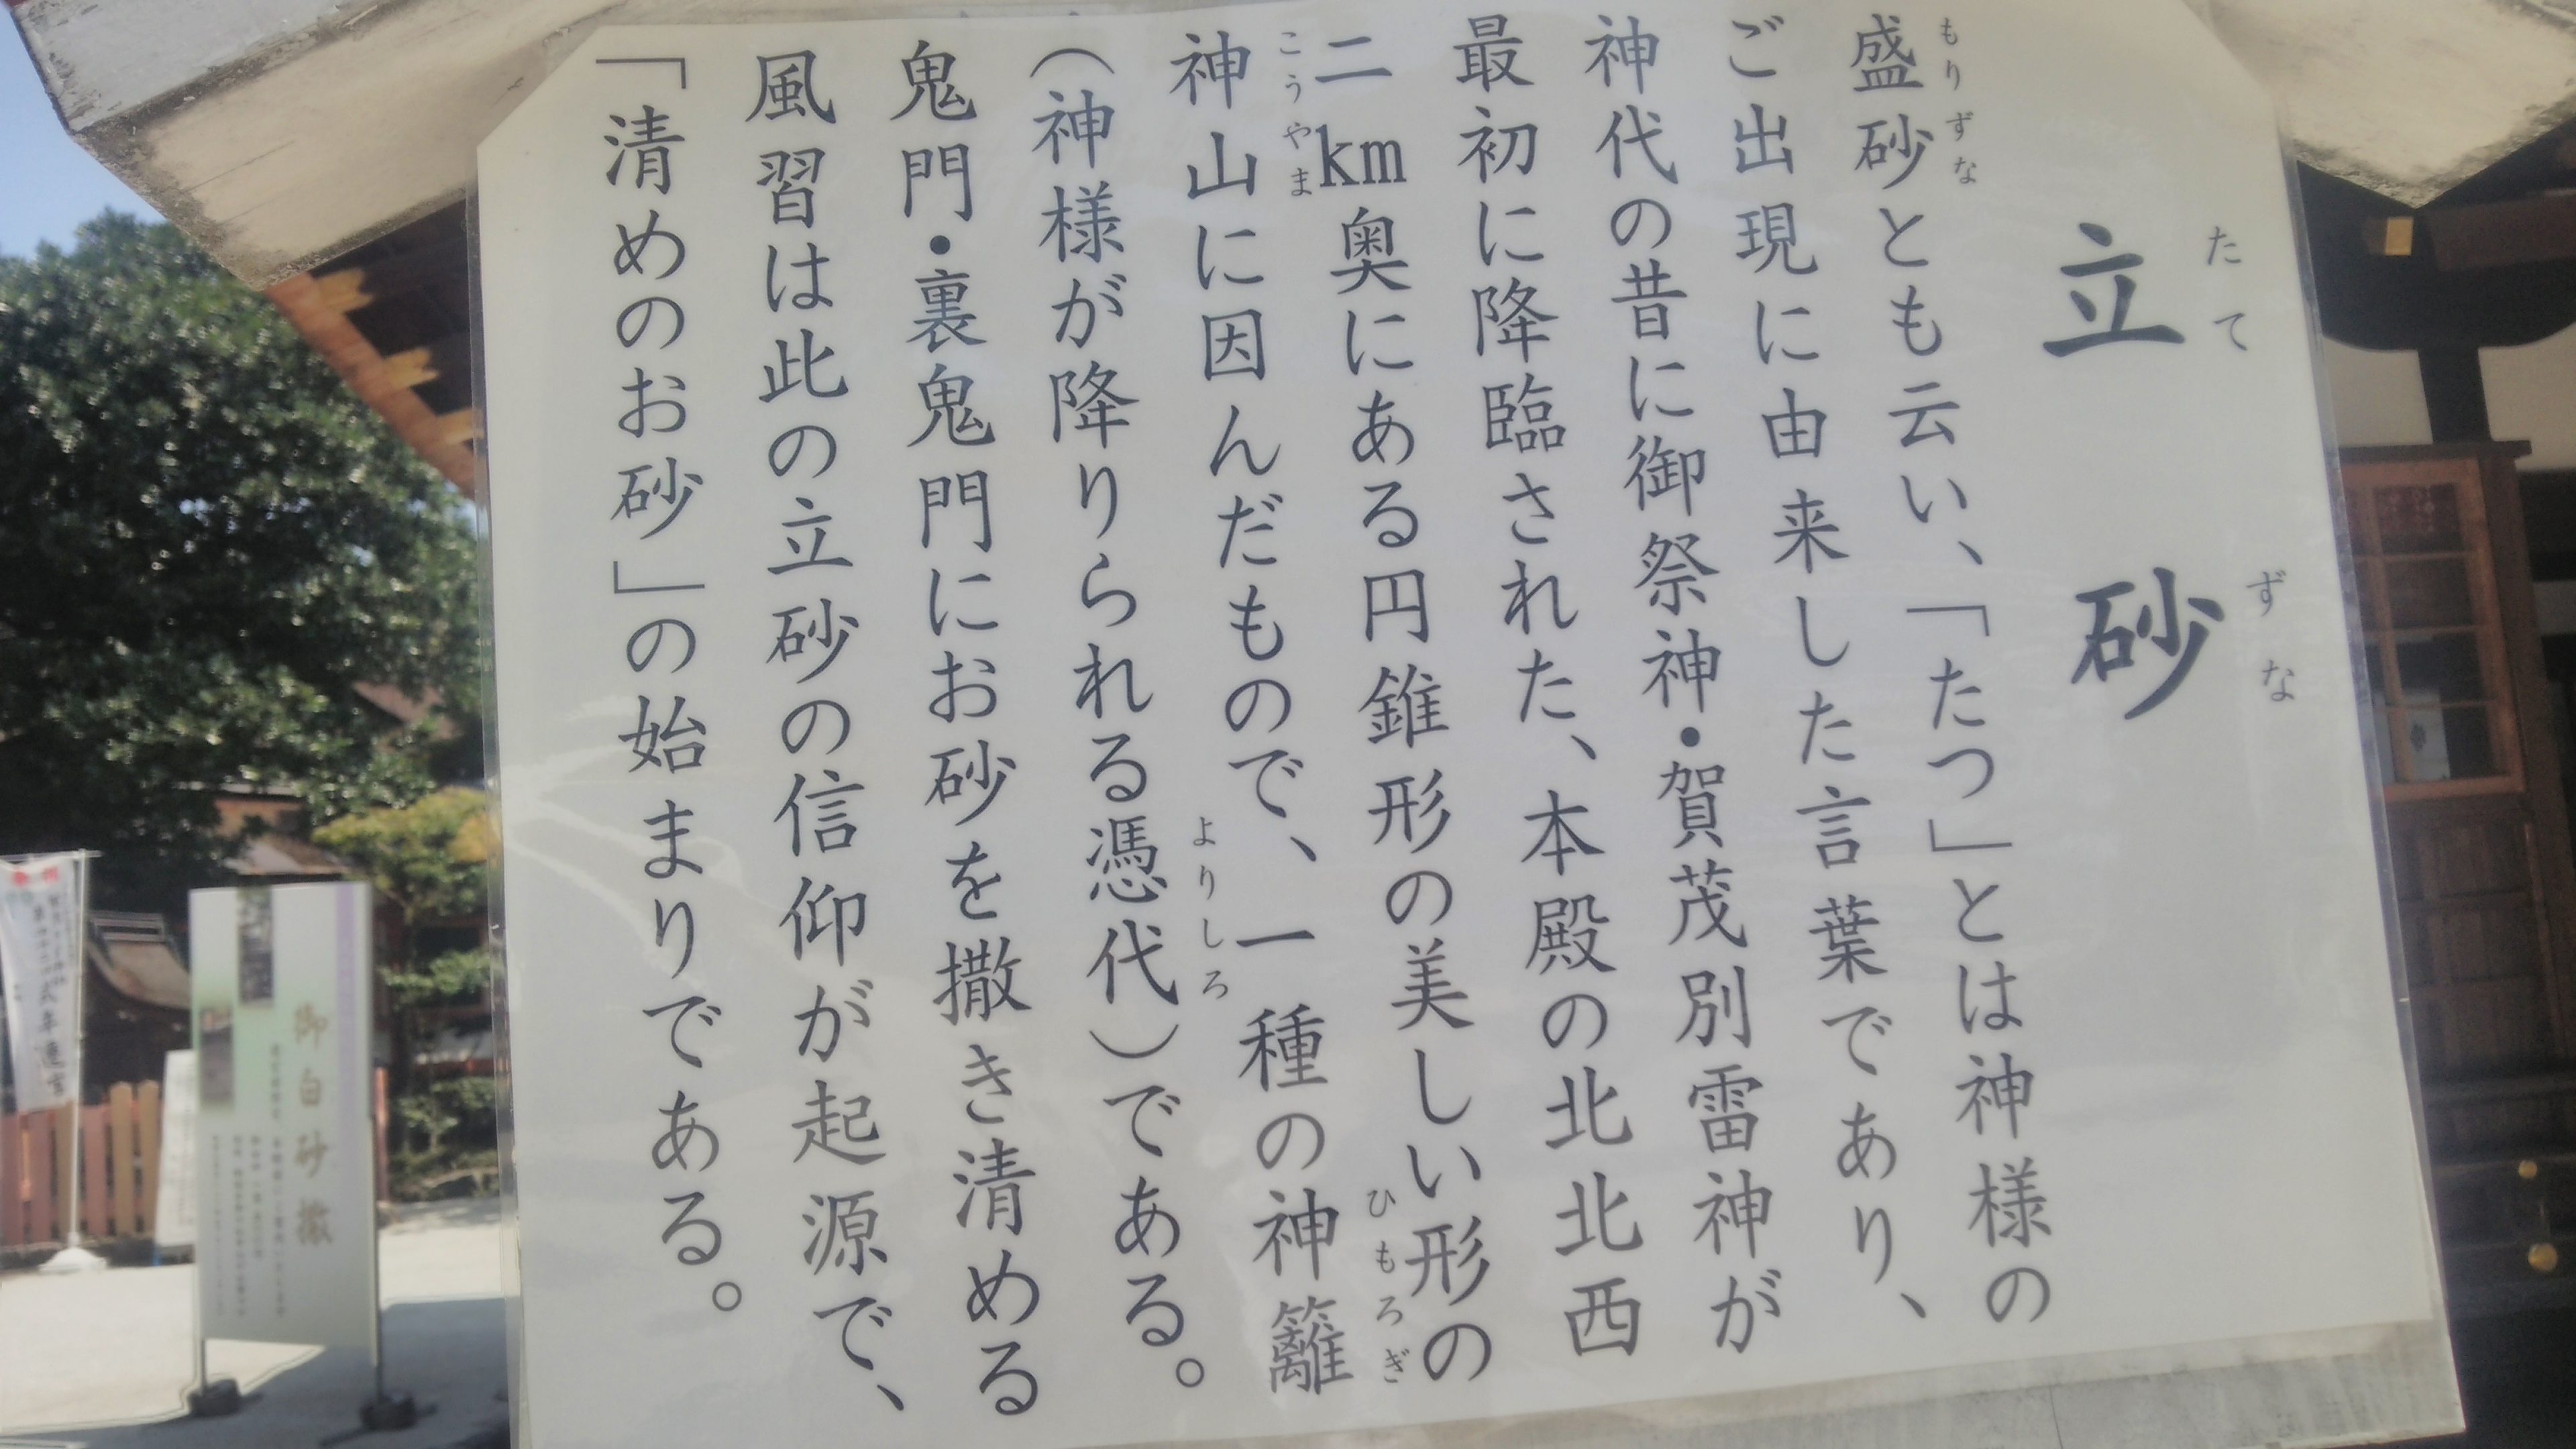 立砂
たてずな
盛砂とも云い、「たつ」とは神様の
もりずな
ご出現に由来した言葉であり、
神代の昔に御祭神・賀茂別雷神が
最初に降臨された、本殿の北北西
二km奥にある円錐形の美しい形の
神山に因んだもので、一種の神籬
こうやま
ひもろぎ
(神様が降りられる憑代)である。
よりしろ
鬼門・裏鬼門にお砂を撒き清める
風習は此の立砂の信仰が起源で、
「清めのお砂」の始まりである。
御白砂撒